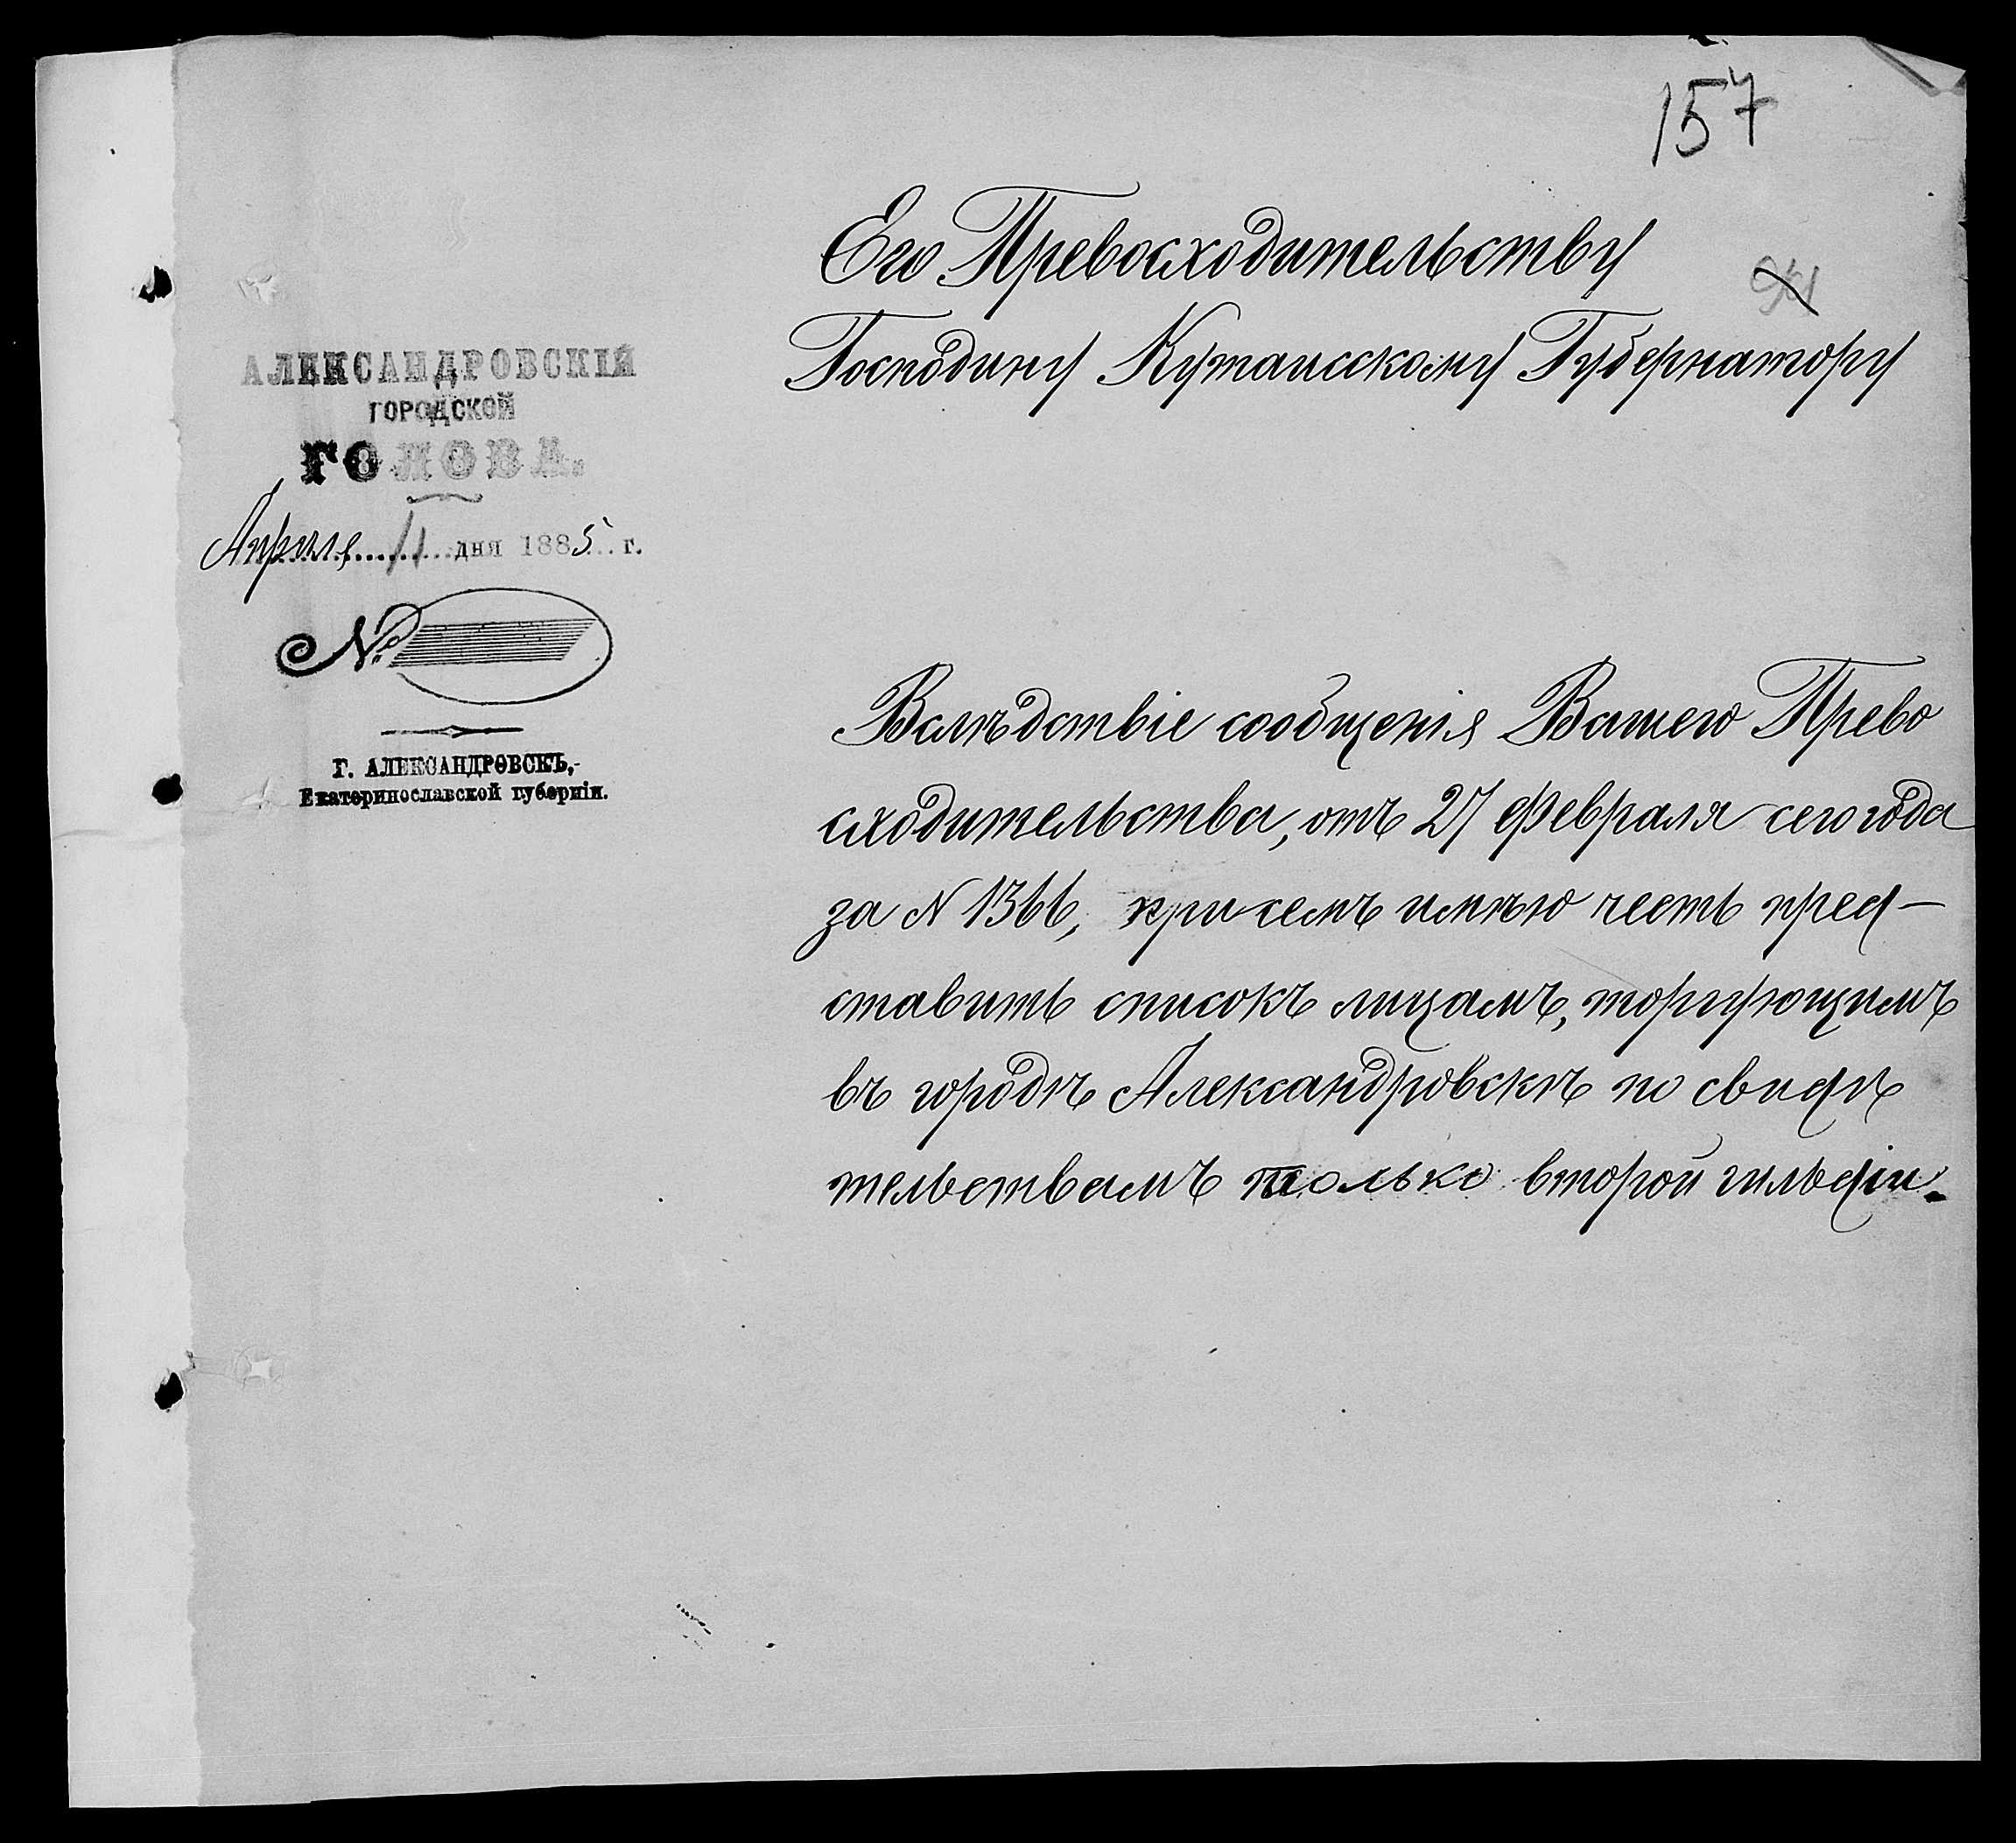 157
Его Превосходительству
Господину Кутаисскому Губернатору
АЛЕКСАНДРОВСКІЙ
ГОРОДСКОЙ
ГОЛОВА.
Апрѣля 11 дня 1885 г.
№
Г. АЛЕКСАНДРОВСКЪ,
Екатеринославской губерніи.
Вслѣдствіе сообщенія Вашего Прево
сходительства, отъ 27 Февраля сего года
за N 1366, при семъ имѣю честь пред-
ставить списокъ лицамъ, торгующимъ
въ городѣ Александровскѣ по свидѣ
тельствамъ только второй гильдіи.